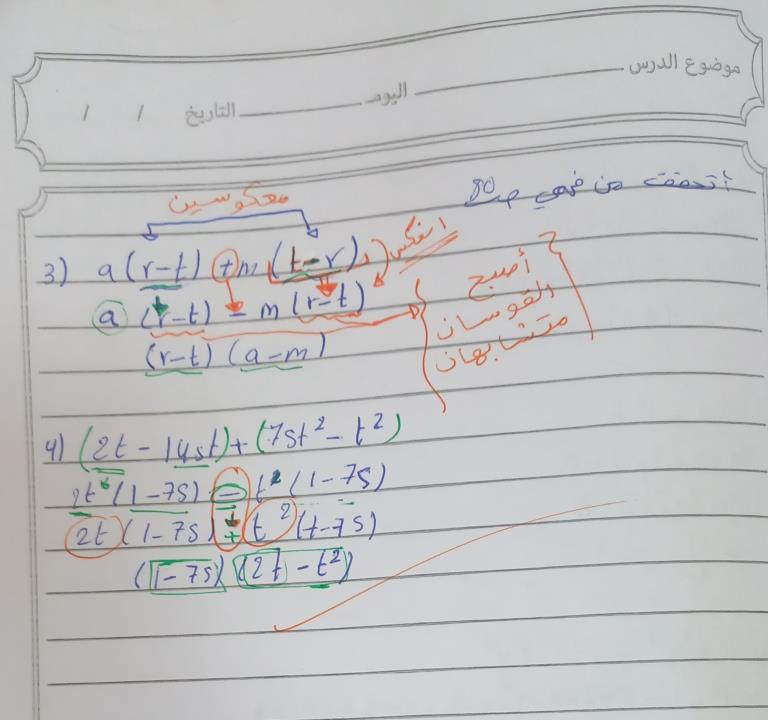 موضوع الدرس اليوم التاريخ / /
أتحققت من فهمي ص80
معكوسين
3) a(r-t) + m(t-r) انعكس
a (r-t) - m(r-t)
(r-t) (a-m)
أصبح
القوسان
متشابهان
4) (2t - 14st) + (7st² - t²)
2t (1-7s) - t² (1-7s)
2t (1-7s) + t² (t-7s)
(1-7s) (2t - t²)